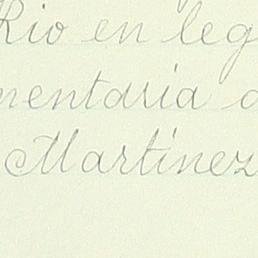 Rio en leg
mentaria a
Martínez